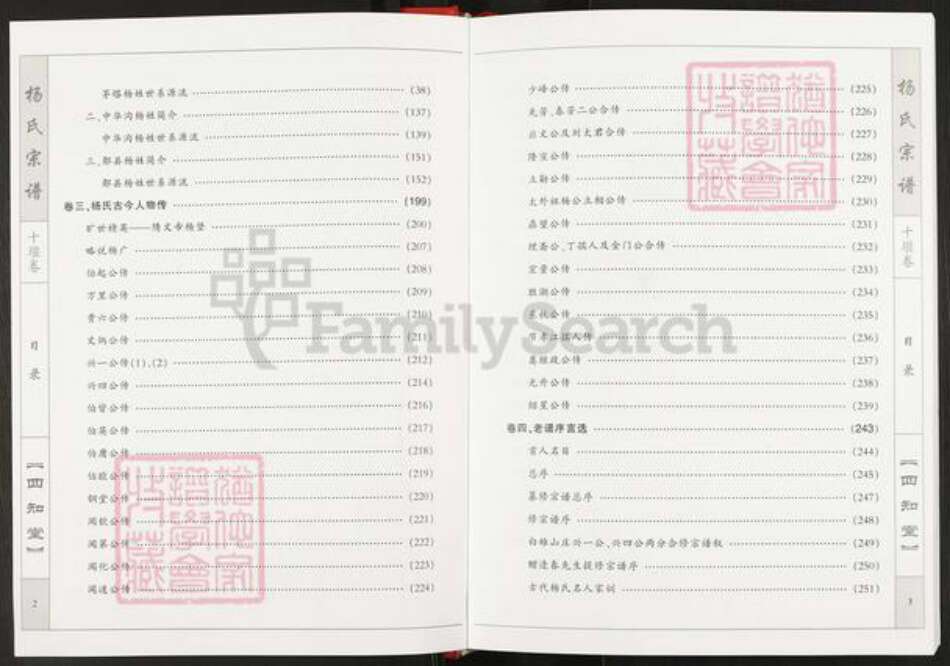 杨氏宗谱
十堰卷
目录
【四知堂】
2
茅塔杨姓世系源流 (38)
二、中华沟杨姓简介 (137)
中华沟杨姓世系源流 (139)
三、郧县杨姓简介 (151)
郧县杨姓世系源流 (152)
卷三、杨氏古今人物传 (199)
旷世精英——隋文帝杨坚 (200)
略说杨广 (207)
伯起公传 (208)
万里公传 (209)
贵六公传 (210)
文炳公传 (211)
兴一公传(1)、(2) (212)
兴四公传 (214)
伯曾公传 (216)
伯英公传 (217)
伯庸公传 (218)
伯聪公传 (219)
朝堂公传 (220)
闻钦公传 (221)
闻第公传 (222)
闻化公传 (223)
闻道公传 (224)
少峰公传 (225)
公传 (226)
公及刘太君合传 (227)
隆宗公传 (228)
公传 (229)
太外祖杨公土相公传 (230)
鼎望公传 (231)
公、丁孺人及金门公合传 (232)
宏量公传 (233)
胜湖公传 (234)
公传 (235)
节孝江孺人传 (236)
美雄政公传 (237)
允升公传 (238)
绍星公传 (239)
卷四、老谱序言选 (243)
首人名目 (244)
总序 (245)
纂修宗谱总序 (247)
修宗谱序 (248)
白蜡山庄兴一公、兴四公两分合修宗谱叙 (249)
逢春先生提修宗谱序 (250)
古代杨氏名人家训 (251)
杨氏宗谱
十堰卷
目录
【四知堂】
3
FamilySearch